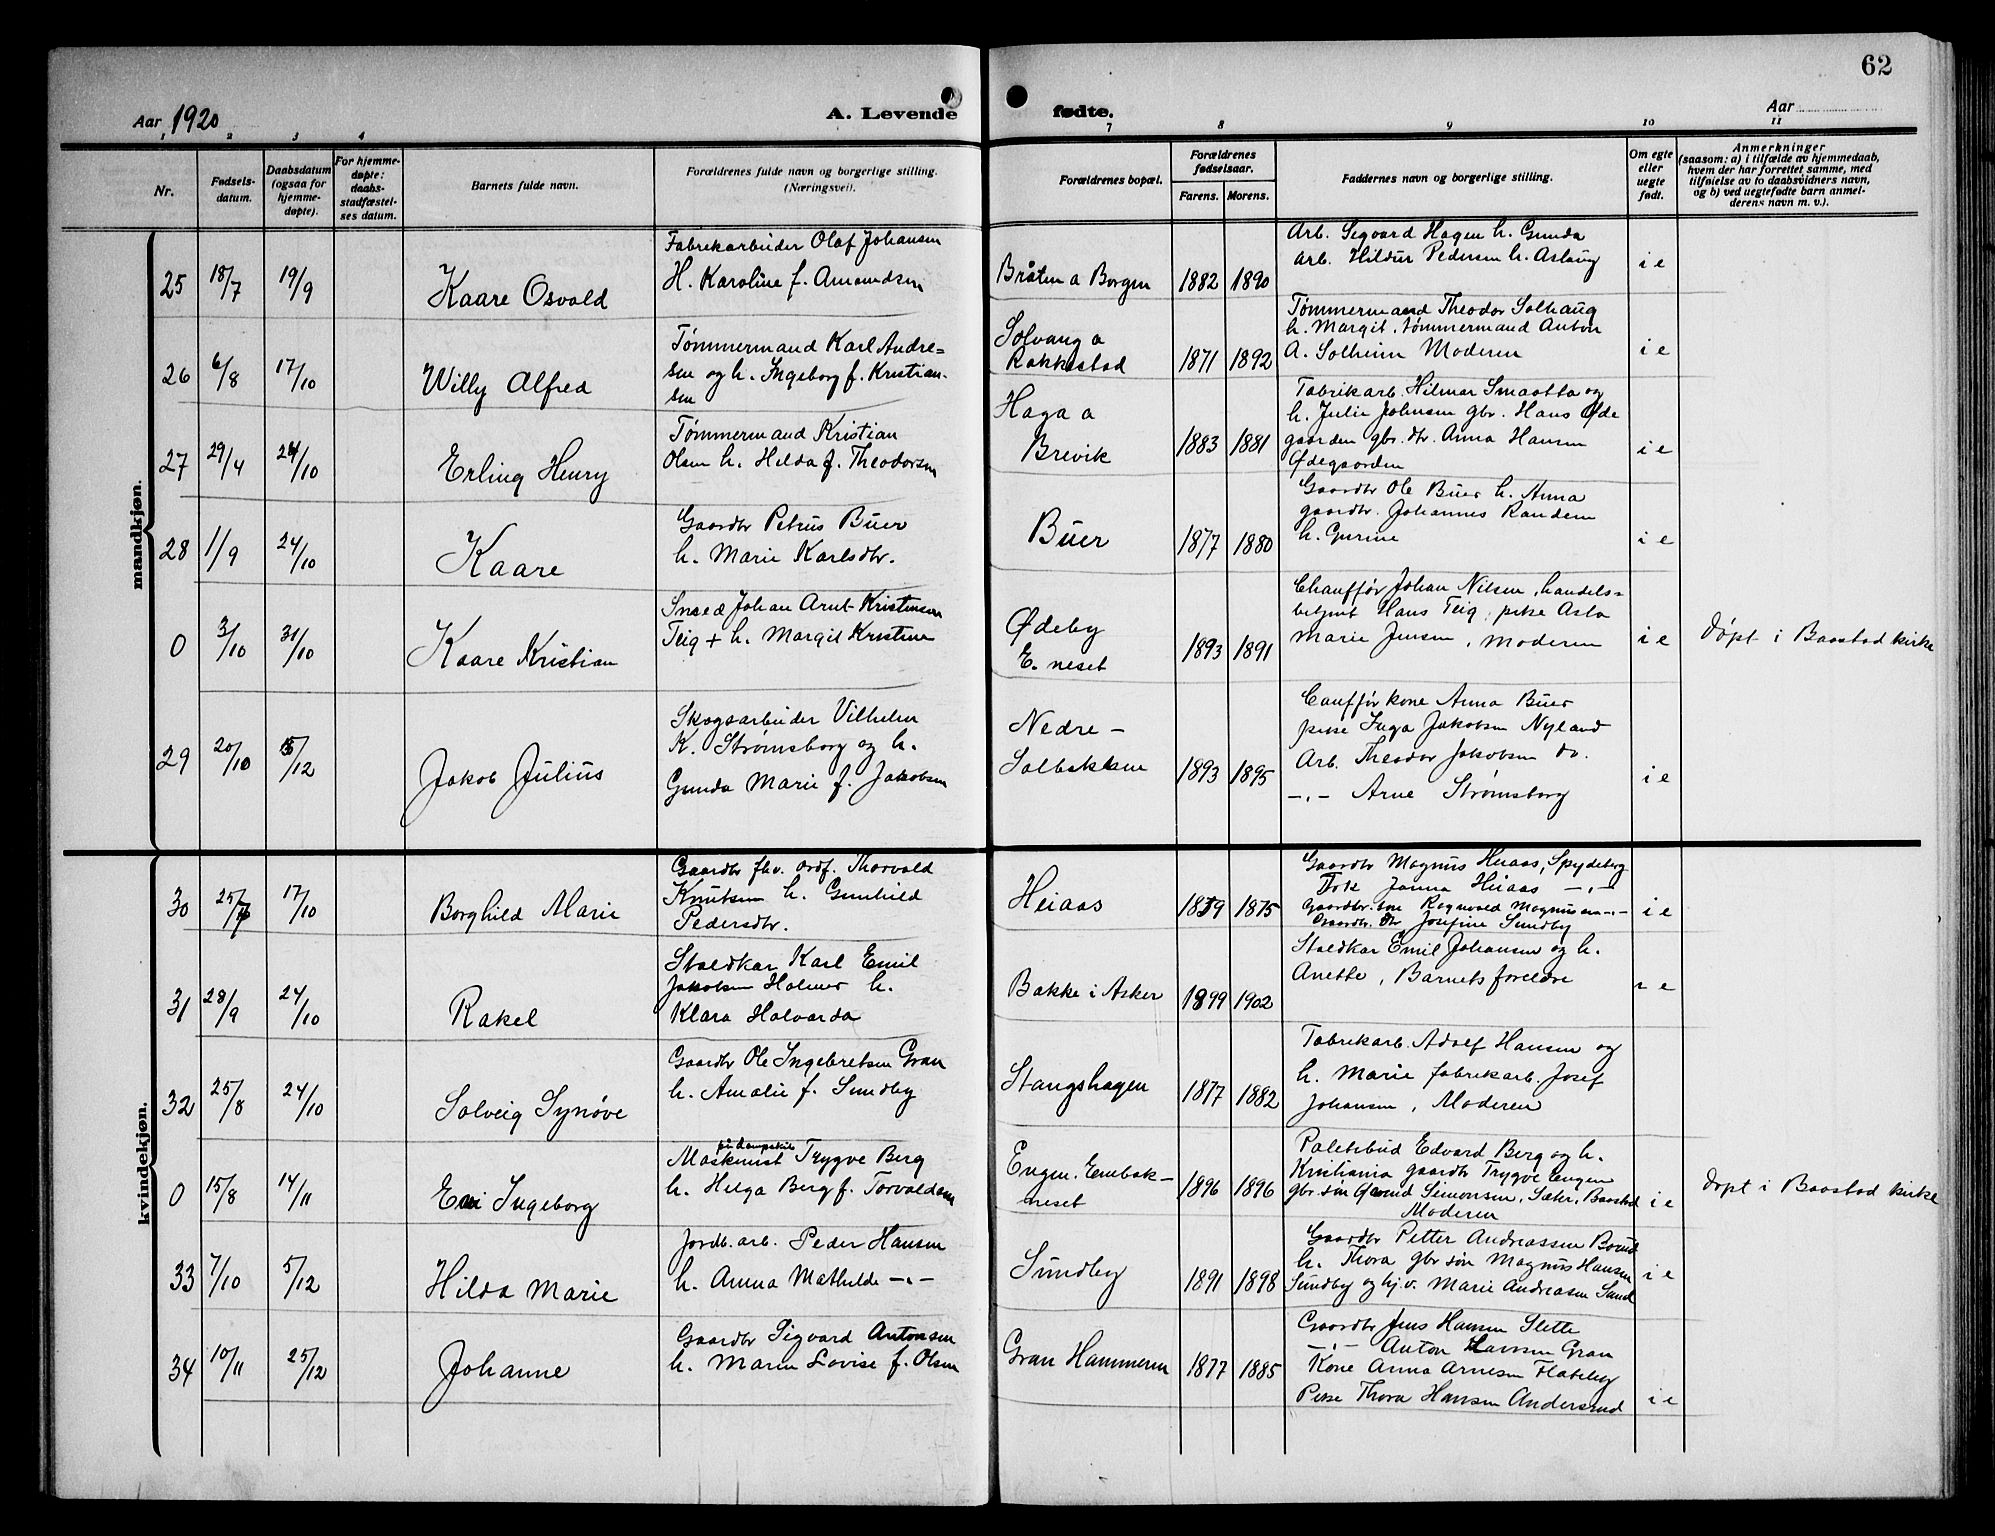 62
Aar 1920
A. Levende
fødte.
Aar
1 2 3 4
7 8 9 10 11
Nr.
Fødsels-
datum.
Daabsdatum
(ogsaa for
hjemme-
døpte).
For hjemme-
døpte:
daabs-
stadfæstel-
ses datum.
Barnets fulde navn.
Forældrenes fulde navn og borgerlige stilling.
(Næringsvei).
Forældrenes bopæl.
Forældrenes
fødselsaar.
Farens. Morens.
Faddernes navn og borgerlige stilling.
Om egte
eller
uegte
født.
Anmerkninger
(saasom: a) i tilfælde av hjemmedaab,
hvem der har forrettet samme, med
tilføielse av to daabsvidners navn,
og b) ved uegtefødte barn anmel-
derens navn m. v.).
mandkjøn.
25 18/7 19/9 Kaare Osvald
Fabrekarbeider Olaf Johansen
H. Karoline f. Amundsen
Bråten a Borgen 1882 1890
Arb. Segvard Hagen h. Gunda
Arb. Hildur Pedersen h. Aslaug
i e
26 6/8 17/10 Willy Alfred
Tømmermand Karl Andre=
sen og h. Ingeborg f. Kristian-
sen
Solvang a
Rakkestad 1871 1892
Tømmermand Theodor Solhaug
h. Margit, tømmermand Anton
A. Solheim Moderen
i e
27 29/4 24/10 Erling Henry
Tømmermand Kristian
Olsen h. Hilda f. Theodorsen
Haga a
Brevik 1883 1881
Fabrikarb. Hilmar Smaatta og
h. Julie Johnsen gbr. Hans Øde
gaarden gbr. dtr. Anna Hansen
Ødegaarden
i e
28 1/9 24/10 Kaare
Gaardbr Petrus Buer
h. Marie Karlsdtr.
Buer 1877 1880
Gaardbr Ole Buer h. Anna
gaardbr. Johannes Randem
h. Gurine
i e
0 3/10 31/10 Kaare Kristian
Johan Arnt Kristensen
Teig + h. Margit Kristine
Ødeby
E. neset 1893 1891
Chauffør Johan Nilsen, handels=
betjent Hans Teig, pike Asla
Marie Jensen, Moderen
i e
Døpt i Baastad kirke
29 20/10 5/12 Jakob Julius
Skogsarbeider Vilhelm
K. Strømsborg og h.
Gunda Marie f. Jakobsen
Nedre -
Solbakken 1893 1895
Cauffør kone Anna Buer
pike Inga Jakobsen Nyland
Arb. Theodor Jakobsen do.
-"- Arne Strømsborg
i e
kvindekjøn.
30 25/7 17/10 Borghild Marie
Gaardbr fhv. ordf. Thorvald
Knutsen h. Gunhild
Pedersdtr.
Heiaas 1879 1875
Gaardbr Magnus Heiaas, Spydeberg
Frk Janna Heiaas -"-
Gaardbr. søn Ragnvald Magnussen -"-
Gaardbr. dtr Josefine Sundby
i e
31 28/9 24/10 Rakel
Staldkar Karl Emil
Jakobsen Holmer h.
Klara Halvarda
Bakke i Asker 1899 1902
Staldkar Emil Johansen og h.
Anette, Barnets foreldre
i e
32 25/8 24/10 Solveig Synøve
Gaardbr Ole Ingebretsen Gran
h. Amalie f. Sundby
Stangshagen 1877 1882
Fabrekarb. Adolf Hansen og
h. Marie fabrekarb. Josef
Johansen, Moderen
i e
0 15/8 14/11 Evi Ingeborg
på dampskib
Maskinist Trygve Berg
h. Helga Berg f. Torvaldsen
Engen, Enebak-
neset 1896 1896
Paletsbud Edvard Berg og h.
Kristiania gaardbr Trygve Engen
gbr. søn Simonsen, Sæter, Baastad
Moderen
i e
Døpt i Baastad kirke
33 7/10 5/12 Hilda Marie
Jordb. arb. Peder Hansen
h. Anna Mathilde -"-
Sundby 1891 1898
Gaardbr Petter Andreassen
h. Thora gbr søn Magnus Hansen
Sundby og hj.v. Marie Andreasen
i e
34 10/11 25/12 Johanne
Gaardbr Sigvard Antonsen
h. Maren Lovise f. Olsen
Gran Hammeren 1877 1885
Gaardbr Jens Hansen Slette
-"- Anton Larsen Gran
Kone Anna Arnesen Flateby
Pike Thora Hansen Andersrud
i e